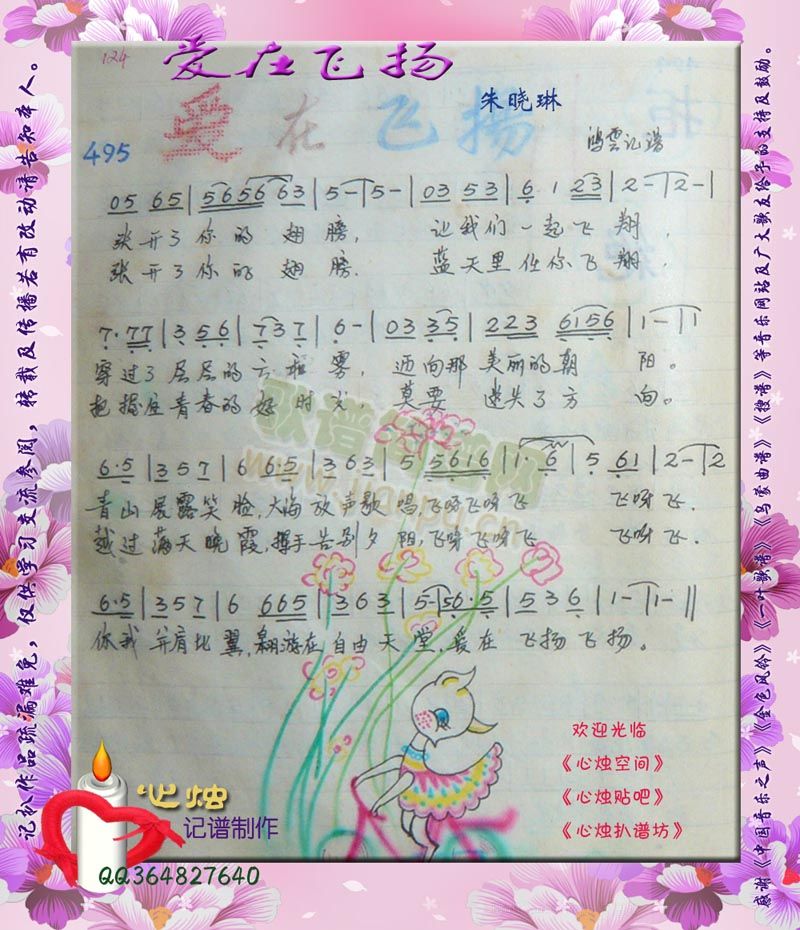 124
爱在飞扬
朱晓琳
爱在飞扬
495
鸿雲记谱
05 65 | 565663 | 5-|5- | 03 53 | 6 1 23 | 2-|2-|
张开了你的翅膀, 让我们一起飞翔,
张开了你的翅膀. 蓝天里任你飞翔.
7·77 | 3 56 | 737 | 6- | 03 35 | 223 6156 | 1-|1
穿过了层层的云和雾, 迈向那美丽的朝阳。
把握住青春的好时光, 莫要迷失了方向。
6·5 | 357 | 6 6·5 | 363 | 5 5616 | 1·6 | 5 61 | 2-|2
青山展露笑脸,大海放声歌唱,飞呀飞呀飞 飞呀飞.
越过满天晚霞,挥手告别夕阳,飞呀飞呀飞 飞呀飞.
6·5 | 357 | 6 665 | 363 | 5-|56·5 | 536 | 1-|1-||
你我并肩比翼,翱游在自由天堂,爱在飞扬飞扬。
歌谱简谱网
www.jianpu.cn
欢迎光临
《心烛空间》
《心烛贴吧》
《心烛扒谱坊》
心烛
记谱制作
QQ364827640
记扒作品疏漏难免,仅供学习交流参阅,转载及传播若有改动请告知本人。
感谢《中国音乐之声》《金色风铃》《一叶歌谱》《乌蒙曲谱》《搜谱》等音乐网站及广大歌友给予的支持及鼓励。